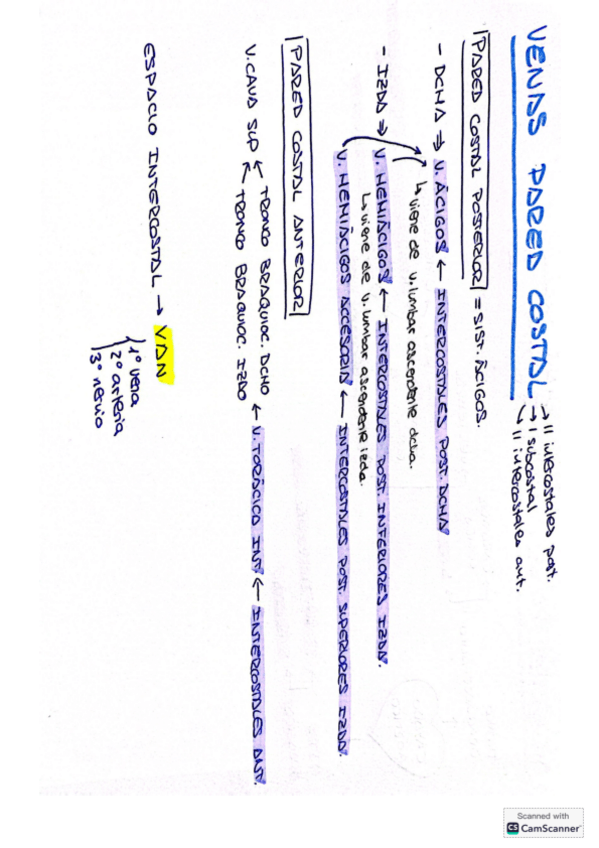 VENAS PARED COSTAL
→ 11 intercostales post.
→ 1 subcostal
→ 11 intercostales ant.
PARED COSTAL POSTERIOR = SIST. ÁCIGOS.
- DCHA ⇒ V. ÁCIGOS ← INTERCOSTALES POST. DCHA
↳ viene de v. lumbar ascendente dcha.
- IZDA ⇒ V. HEMIÁCIGOS ← INTERCOSTALES POST. INFERIORES IZDA.
↳ viene de v. lumbar ascendente izda.
V. HEMIÁCIGOS ACCESORIA ← INTERCOSTALES POST. SUPERIORES IZDA.
PARED COSTAL ANTERIOR
V. CAVA SUP ← TRONCO BRAQUIOC. DCHO
← TRONCO BRAQUIOC. IZDO ← V. TORÁCICO INT. ← INTERCOSTALES ANT.
ESPACIO INTERCOSTAL → VAN
1º vena
2º arteria
3º nervio
Scanned with
CS CamScanner